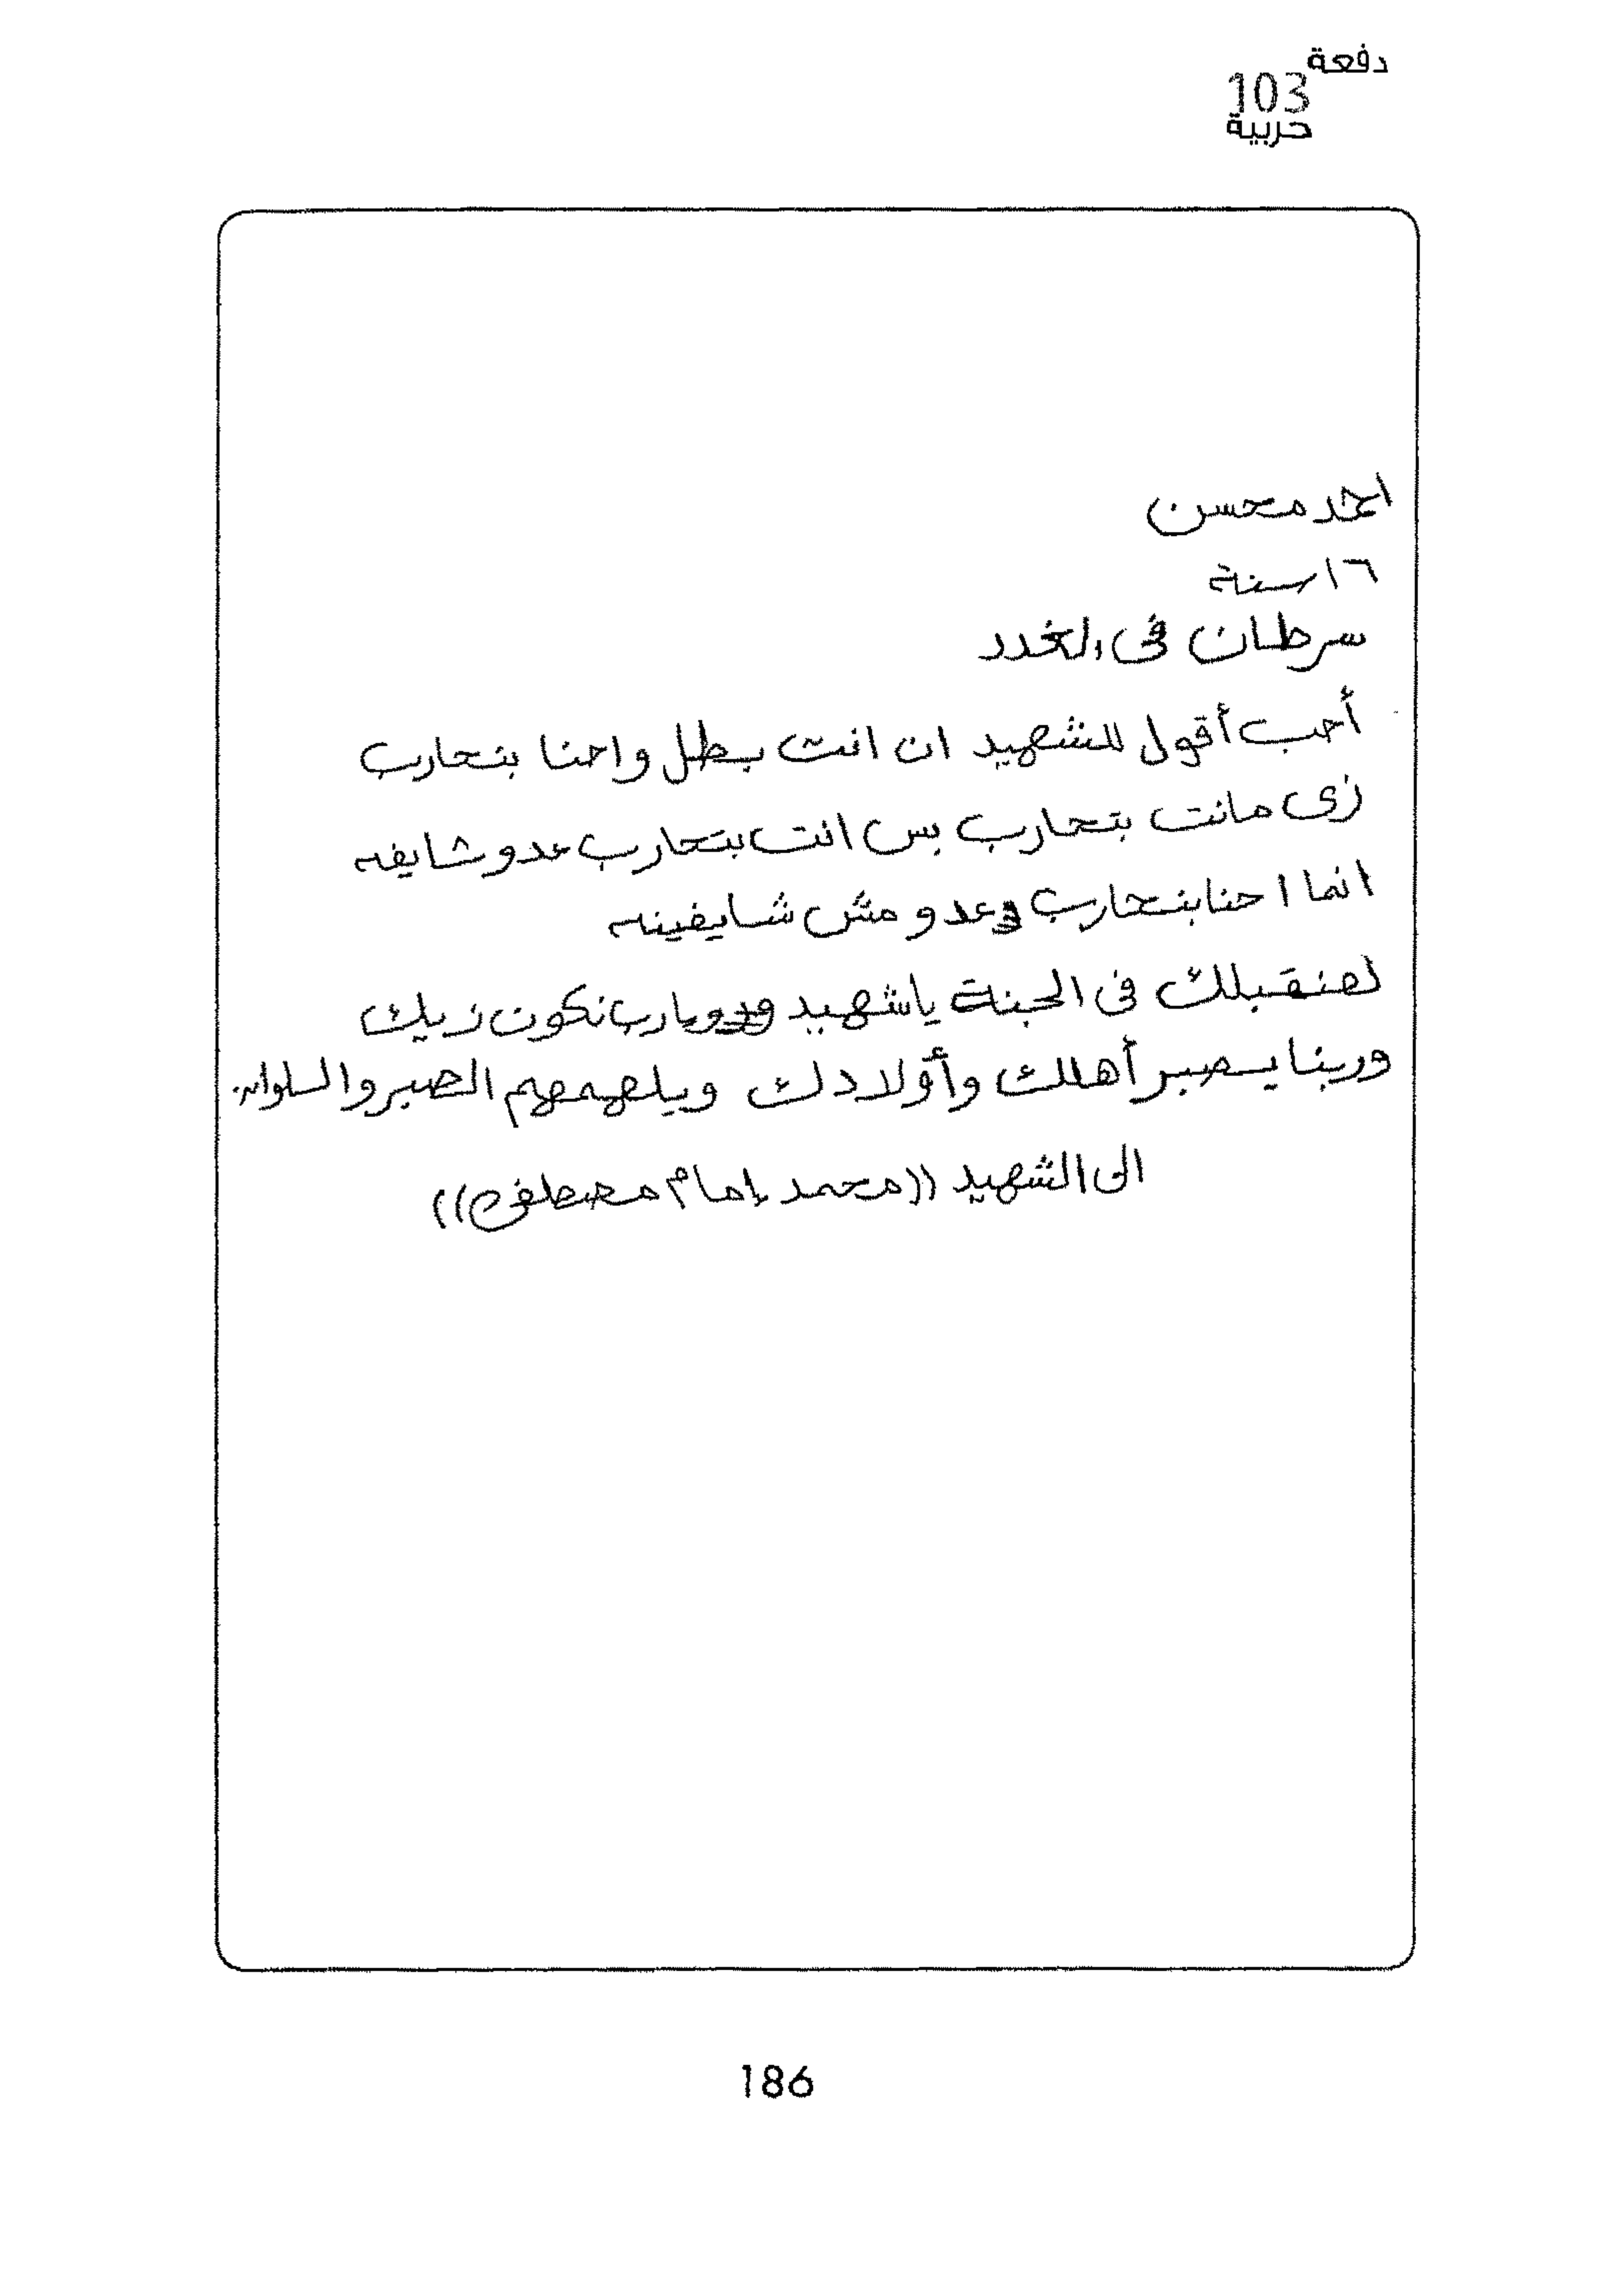 دفعة
103
حربية
احمد محسن
١٦ سنة
سرطان فى الغدد
أحب أقول للشهيد ان انت بطل واحنا بنحارب
زى مانت بتحارب بس انت بتحارب عدو شايفه
انما احنا بنحارب عدو مش شايفينه
هنقبلك فى الجنة ياشهيد ويارب نكون زيك
وربنا يصبر أهلك وأولادك ويلهمهم الصبر والسلوان
الى الشهيد ((محمد إمام مصطفى))
186